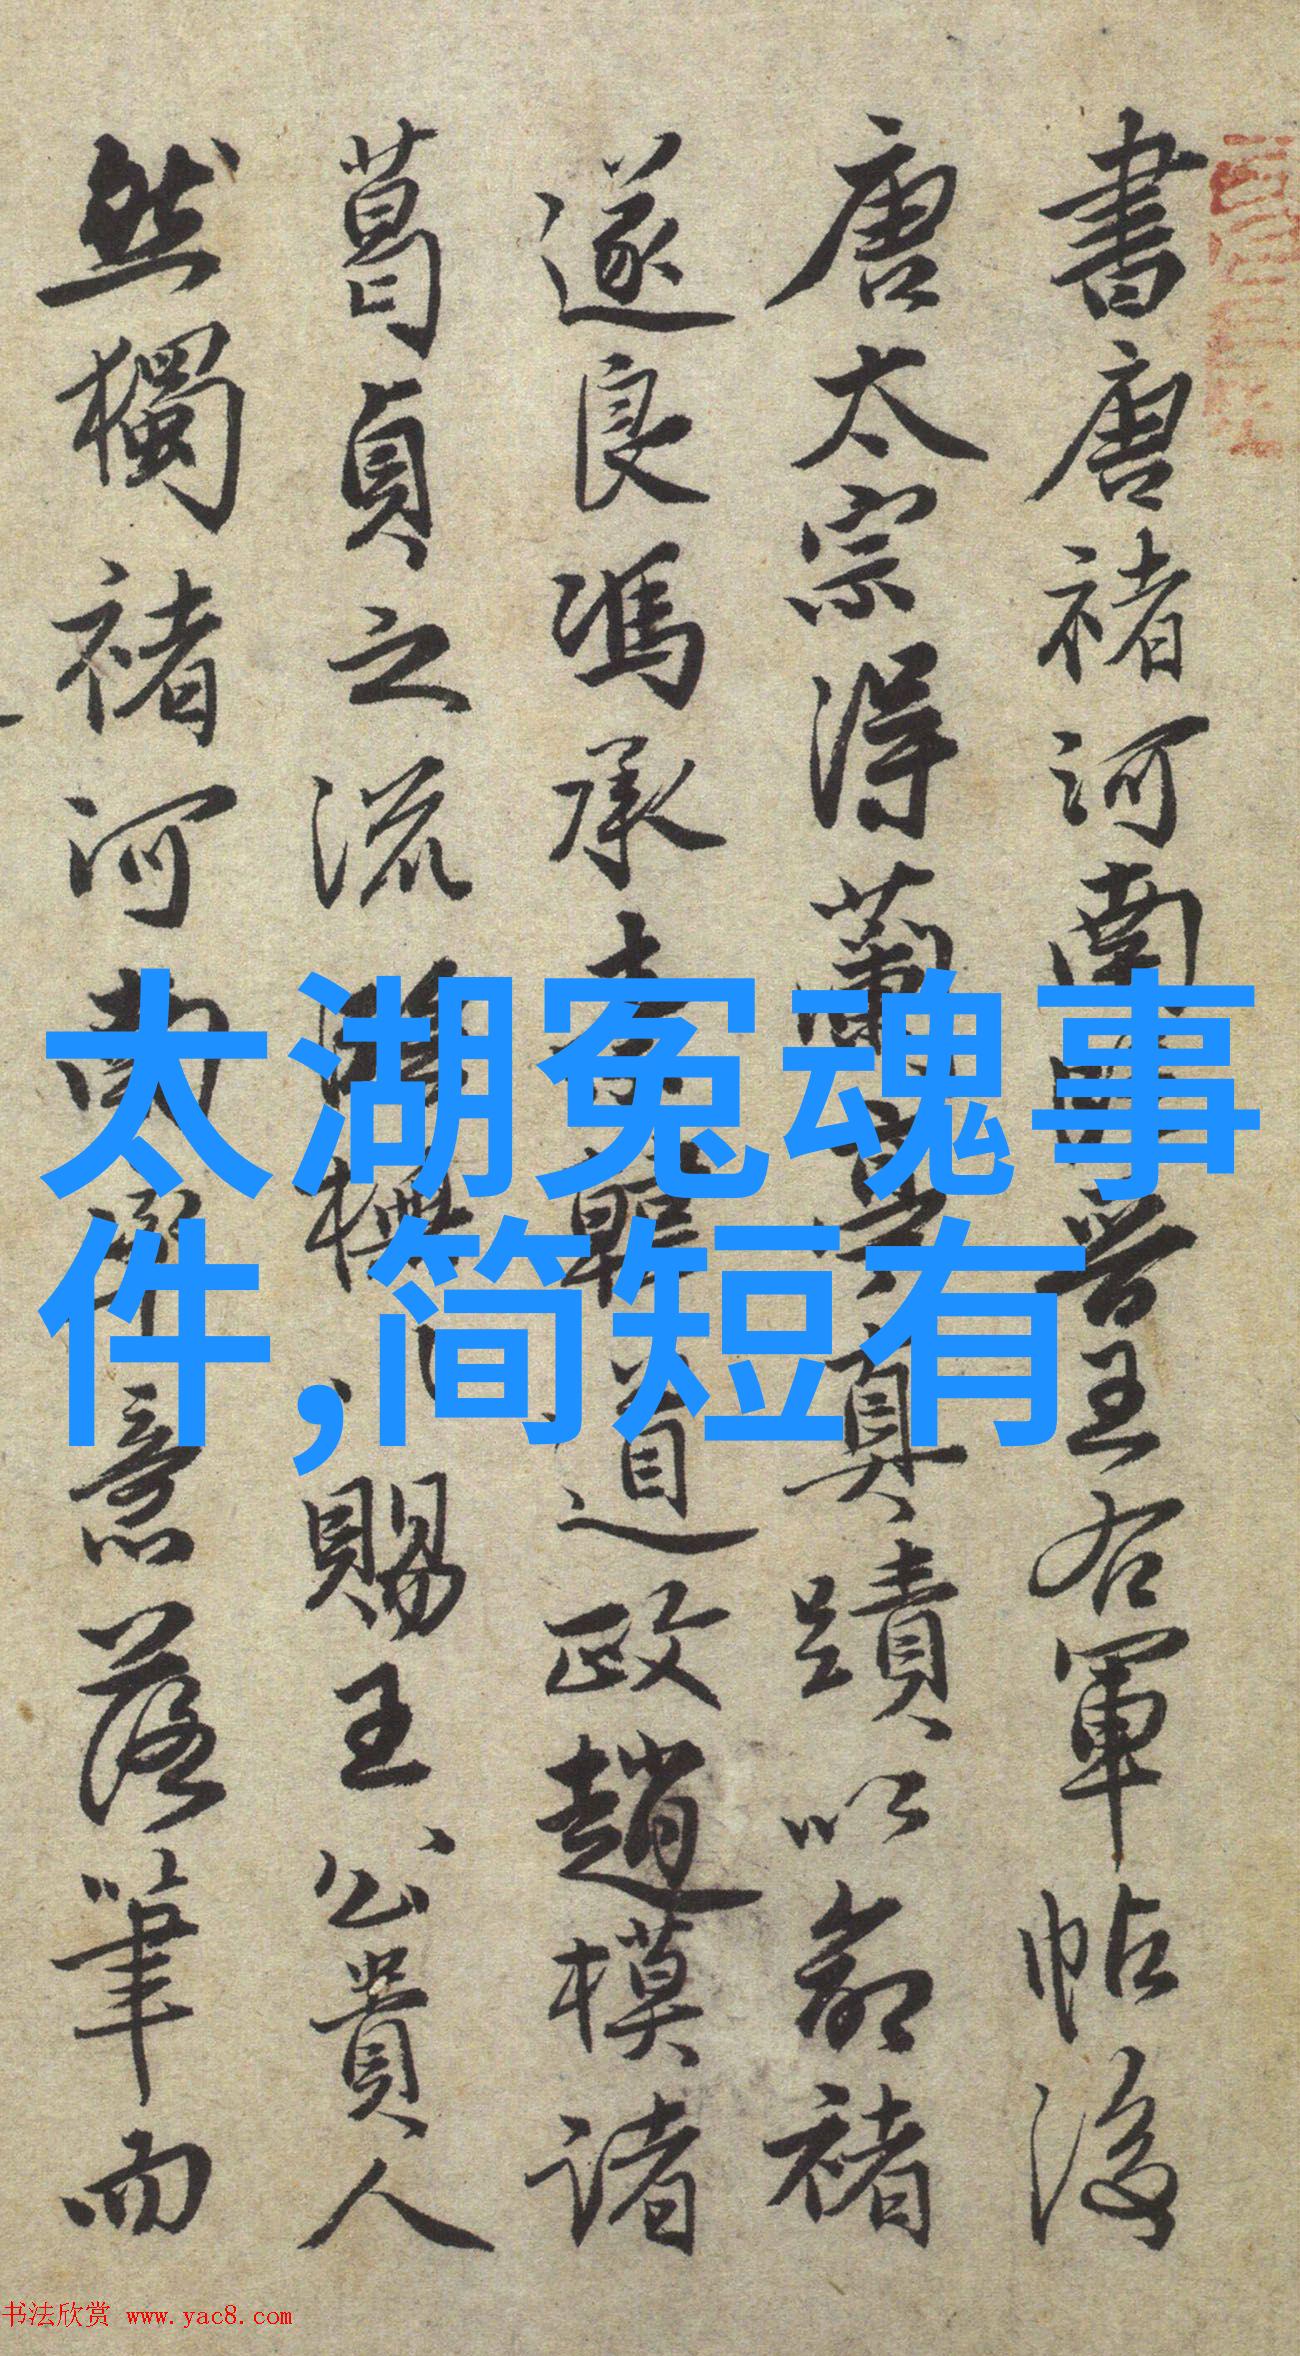 書唐褚河南臨晉王右軍帖後
唐太宗得蘭亭真蹟以命褚
遂良馮承素韓道政趙模諸
葛貞之流模以賜王公貴人
然獨褚河南意落筆而
太湖冤魂事
件,简短有
书法欣赏 www.yac8.com